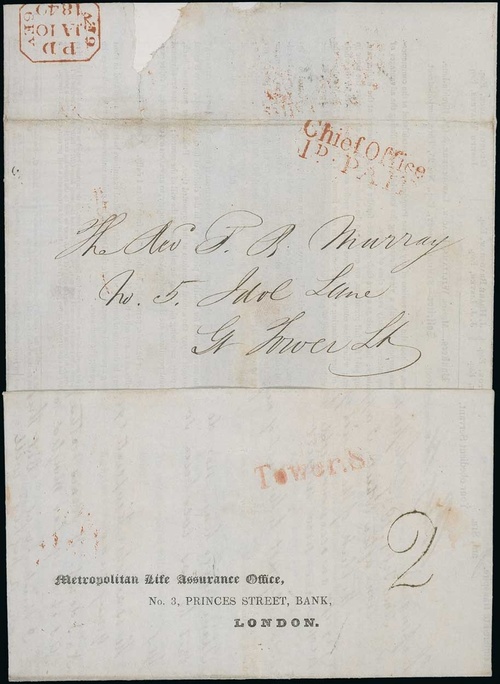 PD
JA 10
1840
Chief Office
1D. PAID
The Revd T. B. Murray
No. 5. Idol Lane
Gt Tower St.
Tower.S.
2
Metropolitan Life Assurance Office,
No. 3, PRINCES STREET, BANK,
LONDON.